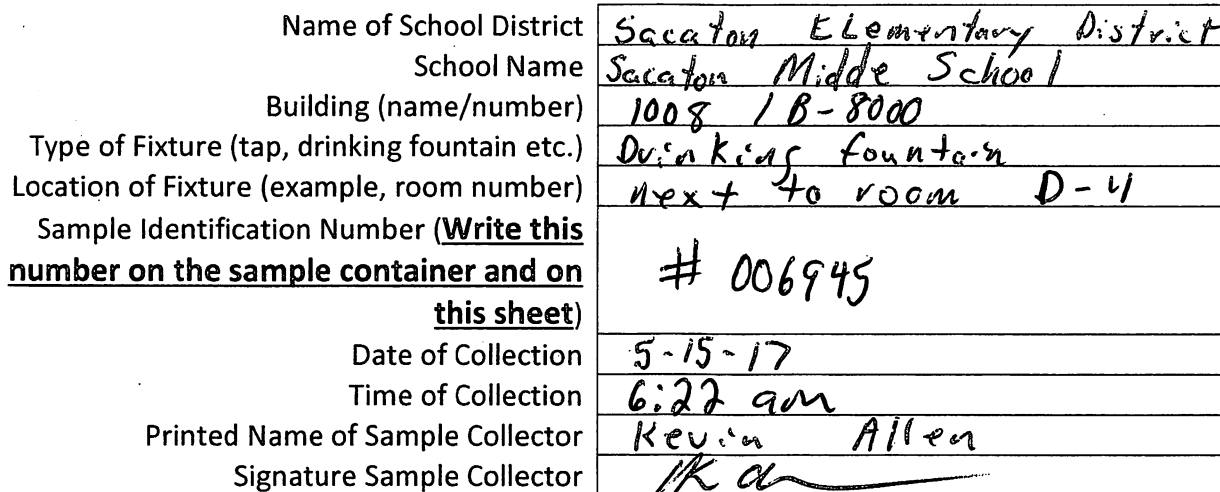 Name of School District Sacaton Elementary District
School Name Sacaton Midde School
Building (name/number) 1008 / B-8000
Type of Fixture (tap, drinking fountain etc.) Drinking fountain
Location of Fixture (example, room number) next to room D-4
Sample Identification Number (Write this
number on the sample container and on
this sheet) # 006945
Date of Collection 5-15-17
Time of Collection 6:22 am
Printed Name of Sample Collector Kevin Allen
Signature Sample Collector